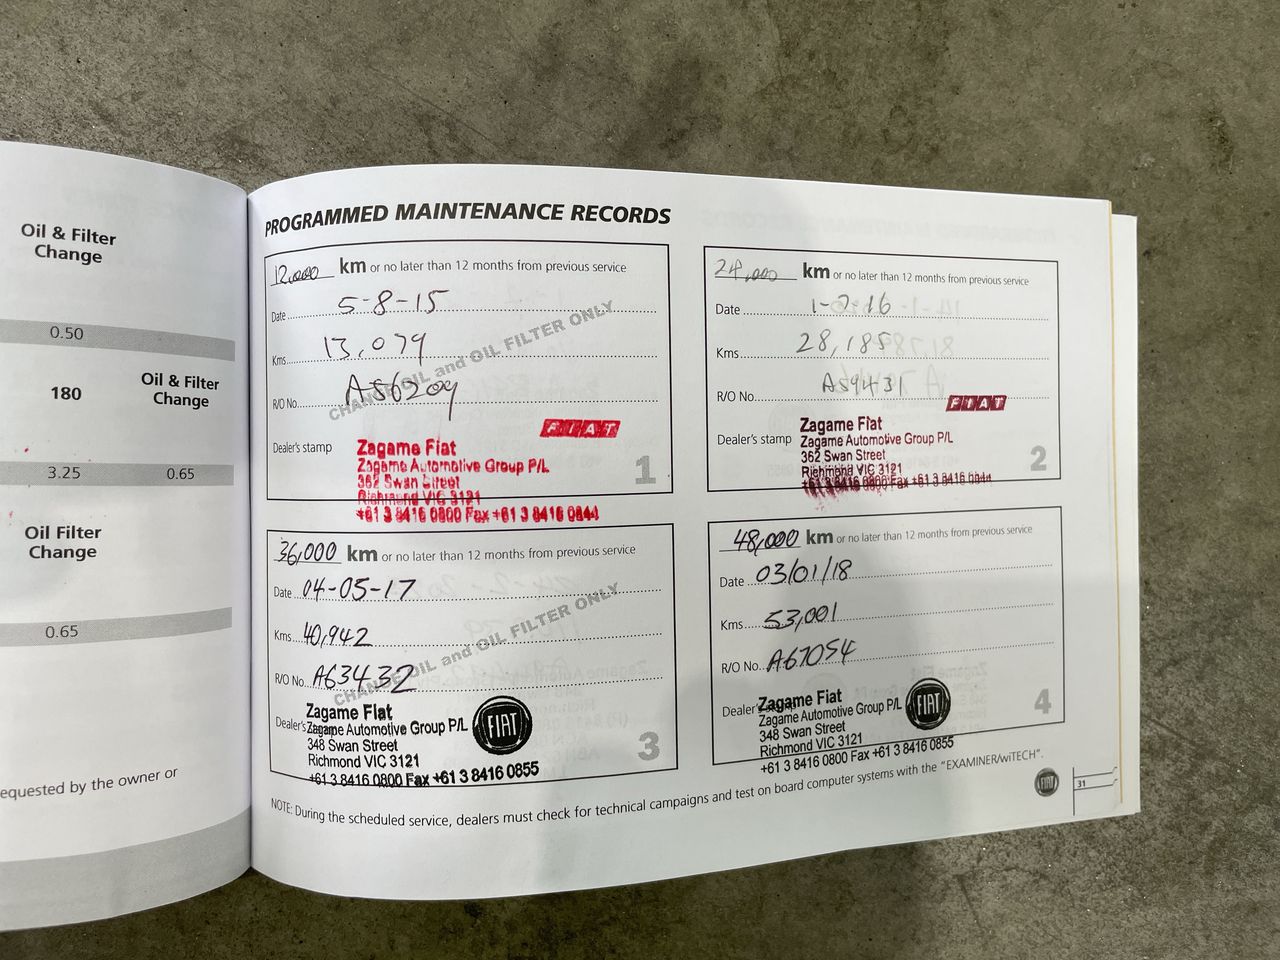 Oil & Filter
Change
0.50
180
Oil & Filter
Change
3.25
0.65
Oil Filter
Change
0.65
equested by the owner or
PROGRAMMED MAINTENANCE RECORDS
12,000 km or no later than 12 months from previous service
Date 5-8-15
Kms 13,079
R/O No. A56209
CHANGE OIL and OIL FILTER ONLY
Dealer's stamp
FIAT
Zagame Fiat
Zagame Automotive Group P/L
362 Swan Street
Richmond VIC 3121
+61 3 8416 0800 Fax +61 3 8416 0844
1
24,000 km or no later than 12 months from previous service
Date 1-2-16
Kms 28,185
R/O No. A59431
Dealer's stamp
FIAT
Zagame Fiat
Zagame Automotive Group P/L
362 Swan Street
Richmond VIC 3121
+61 3 8416 0800 Fax +61 3 8416 0844
2
36,000 km or no later than 12 months from previous service
Date 04-05-17
Kms 40,942
R/O No. A63432
CHANGE OIL and OIL FILTER ONLY
Dealer's
Zagame Fiat
Zagame Automotive Group P/L
348 Swan Street
Richmond VIC 3121
+61 3 8416 0800 Fax +61 3 8416 0855
FIAT
3
48,000 km or no later than 12 months from previous service
Date 03/01/18
Kms 53,001
R/O No. A67054
Dealer's stamp
Zagame Fiat
Zagame Automotive Group P/L
348 Swan Street
Richmond VIC 3121
+61 3 8416 0800 Fax +61 3 8416 0855
FIAT
4
NOTE: During the scheduled service, dealers must check for technical campaigns and test on board computer systems with the "EXAMINER/wiTECH".
FIAT
31